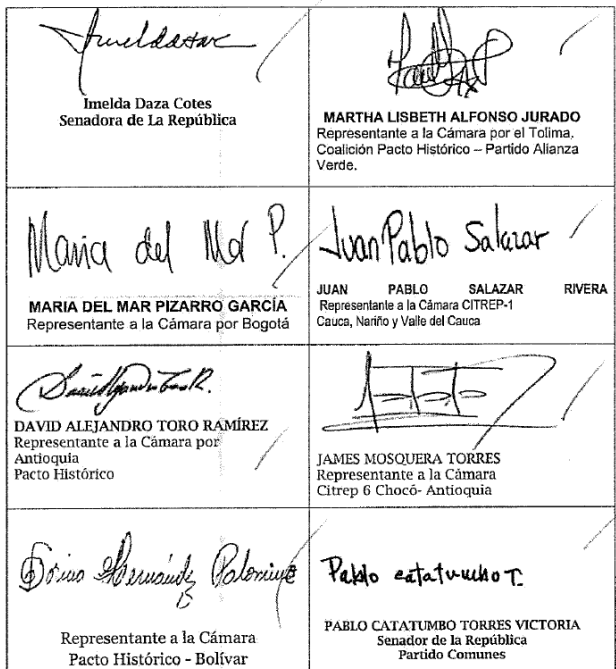 Imelda Daza Cotes
Senadora de La República
MARTHA LISBETH ALFONSO JURADO
Representante a la Cámara por el Tolima,
Coalición Pacto Histórico – Partido Alianza
Verde.
Maria del Mar P.
MARIA DEL MAR PIZARRO GARCÍA
Representante a la Cámara por Bogotá
Juan Pablo Salazar
JUAN PABLO SALAZAR RIVERA
Representante a la Cámara CITREP-1
Cauca, Nariño y Valle del Cauca
DAVID ALEJANDRO TORO RAMÍREZ
Representante a la Cámara por
Antioquia
Pacto Histórico
JAMES MOSQUERA TORRES
Representante a la Cámara
Citrep 6 Chocó- Antioquia
Hernández Palomino
Representante a la Cámara
Pacto Histórico - Bolívar
Pablo catatumbo T.
PABLO CATATUMBO TORRES VICTORIA
Senador de la República
Partido Comunes